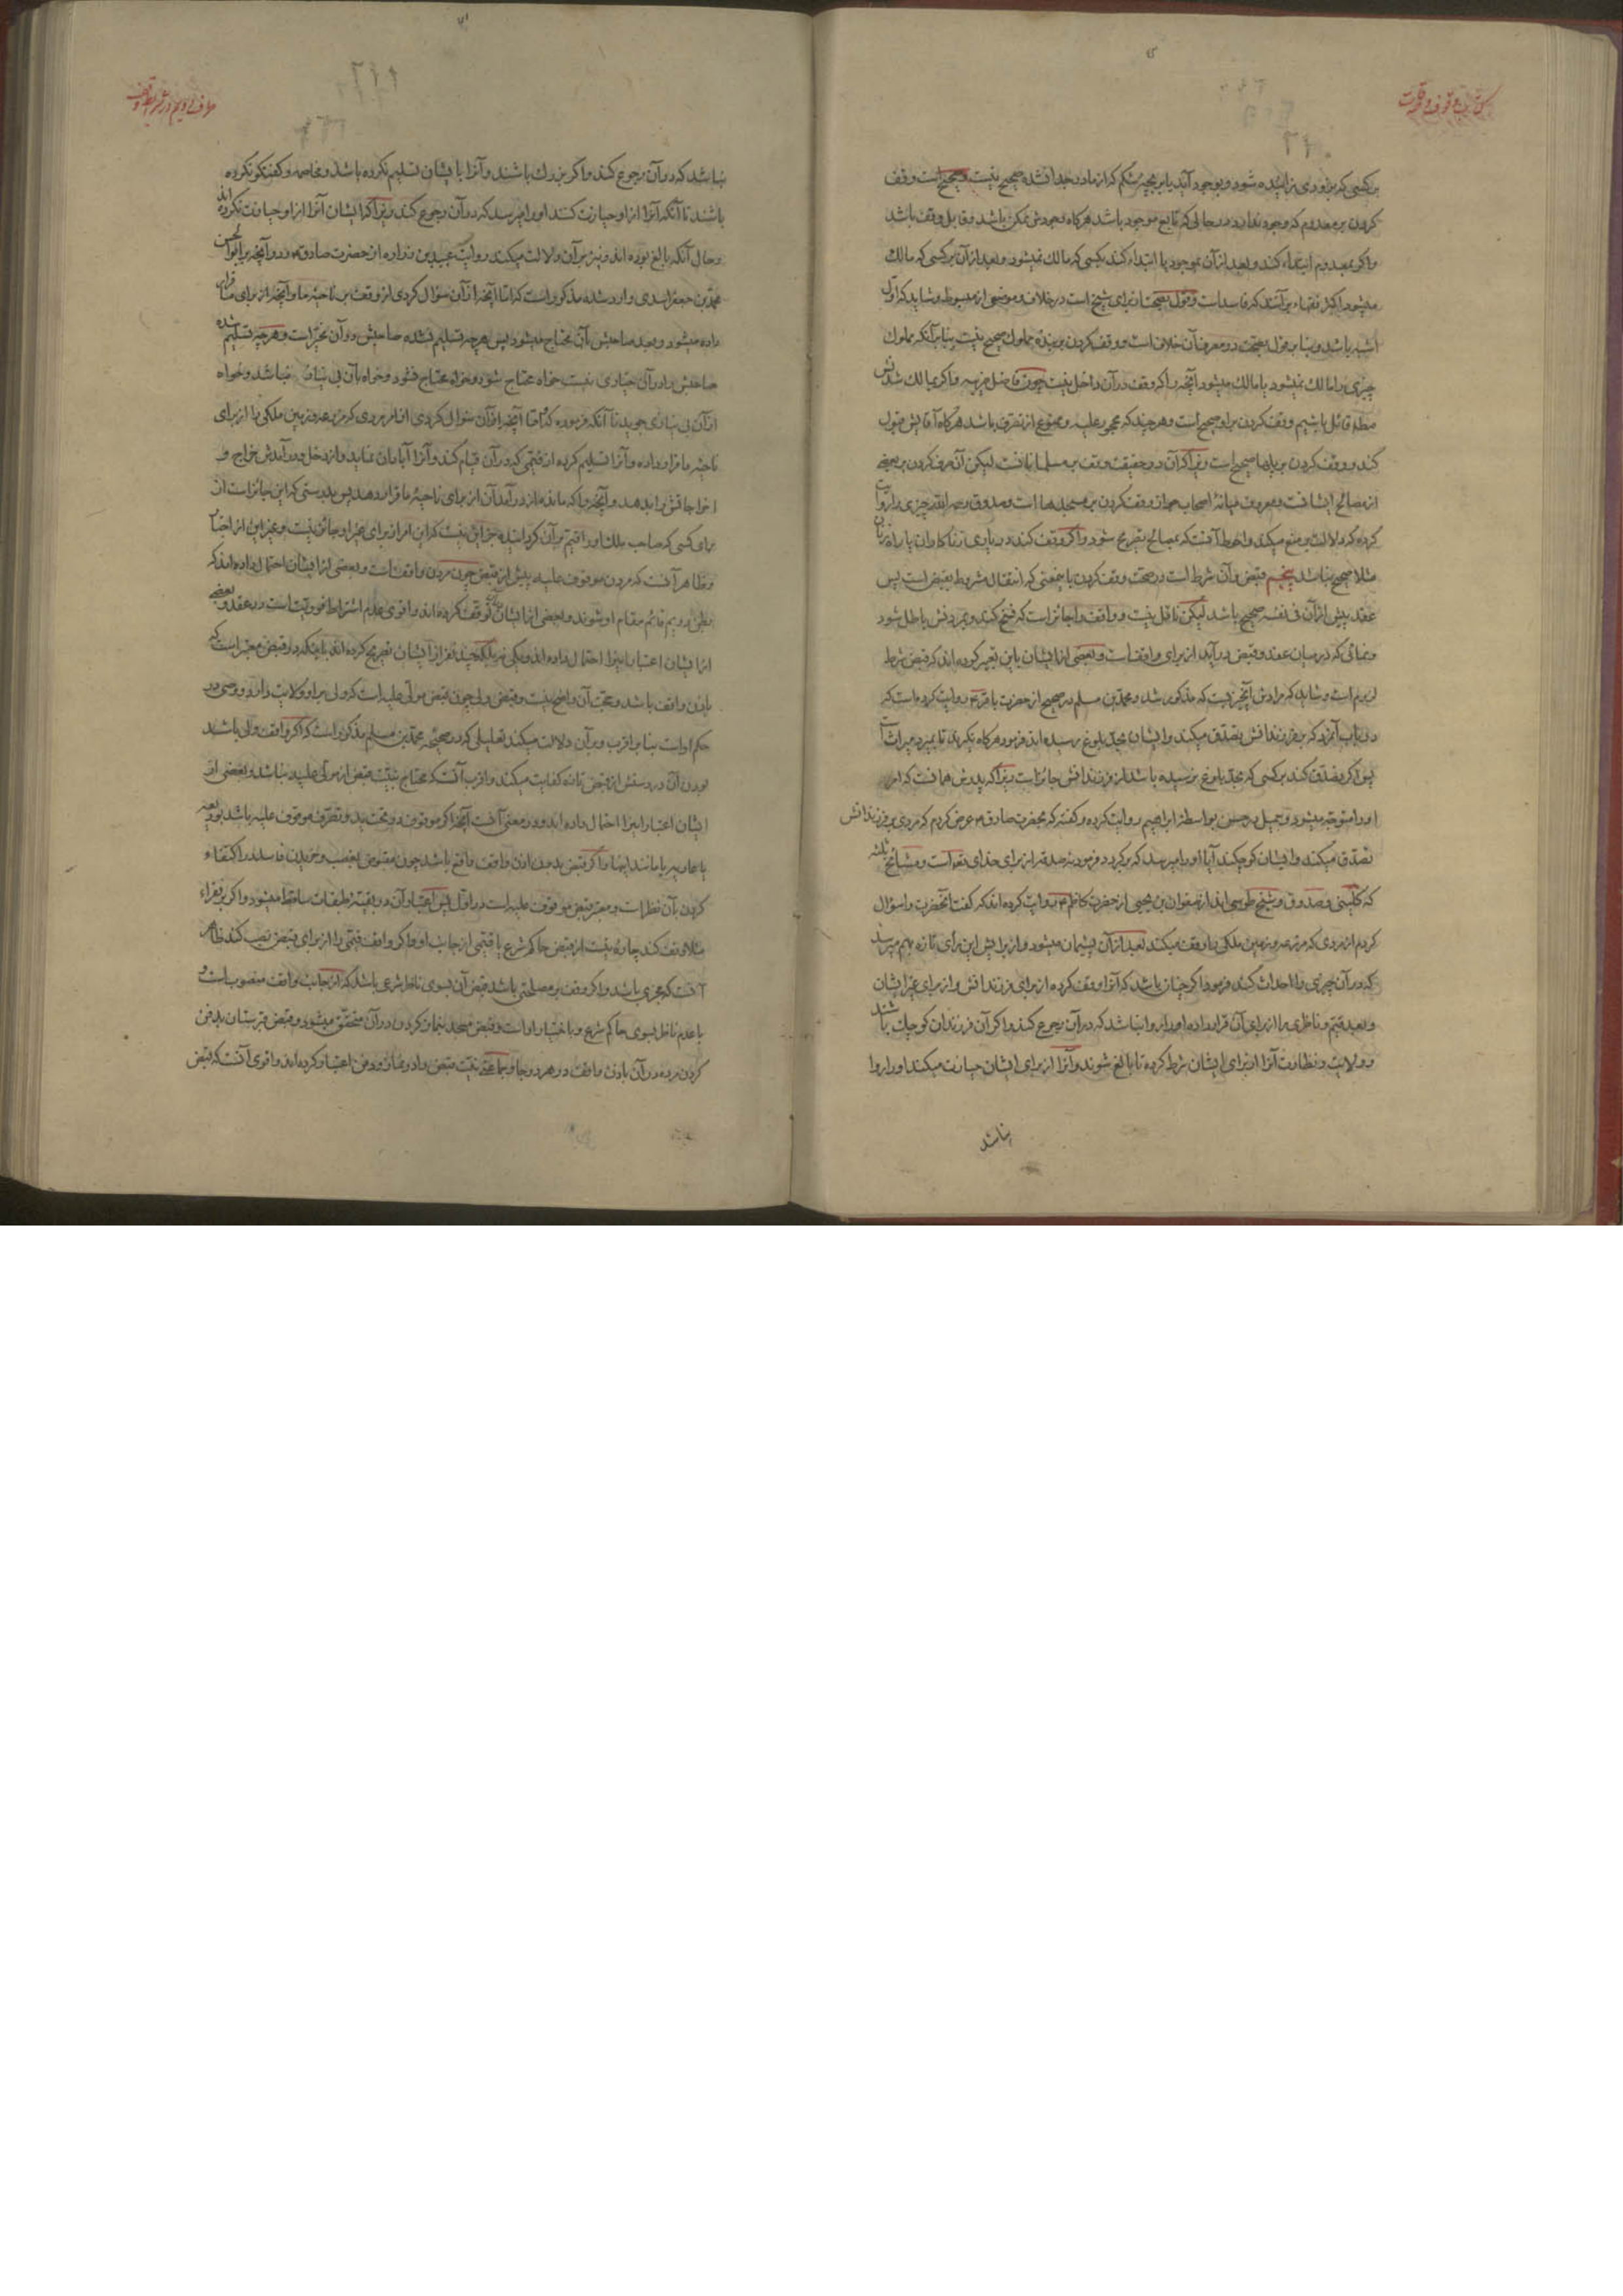 کتاب وقوف و صدقات
بر کسی که بزودی زائیده شود و بوجود آید یا بر بچهٔ شکم که از مادر جدا نشده صحیح نیست و صحیح است وقف
کردن بر معدوم که وجود ندارد در حالی که تابع موجود باشد هرگاه وجودش ممکن باشد و قابل وقف باشد
و اگر بمعدوم ابتداء کند و بعد از آن بموجود یا ابتداء کند بکسی که مالک نمیشود و بعد از آن بر کسی که مالک
میشود اکثر فقهاء بر آنند که فاسد است و قول بصحت آن رای شیخ است در خلاف و موضعی از مبسوط و شاید که اول
اشبه باشد و بنا بر قول بصحت در مصرف آن خلاف است و وقف کردن بر بندهٔ مملوک صحیح نیست بنا بر آنکه مملوک
چیزی را مالک نمیشود یا مالک میشود آنچه را که وقف در آن داخل نیست چون فاضل ضریبه و اگر بمالک شدنش
مطلقا قائل باشیم وقف کردن بر او صحیح است و هر چند که محجور علیه و ممنوع از تصرف باشد هرگاه آقایش قبول
کند و وقف کردن بر پلها صحیح است زیرا که آن در حقیقت وقف بر مسلمانانست لیکن آن صرف کردن بر بعضی
از مصالح ایشانست و معروف میانهٔ اصحاب جواز وقف کردن بر مسجدها است و صدوق رحمه الله چیزی را روایت
کرده که دلالت بر منع میکند و احوط آنست که بمصالح تصریح شود و اگر وقف کند در یاری زناکاران یا راه زنان
مثلا صحیح نباشد پنجم قبض و آن شرط است در صحت وقف کردن بآنمعنی که انتقال مشروط بقبض است پس
عقد پیش از آن فی نفسه صحیح باشد لیکن ناقل نیست و واقف را جائز است که فسخ کند و بمردنش باطل شود
و نمائی که در میان عقد و قبض در آید از برای واقف است و بعضی از ایشان باین تعبیر کرده اند که قبض شرط
لزوم است و شاید که مرادش آنچیزیست که مذکور شد و محمد بن مسلم در صحیح از حضرت باقر ع روایت کرده است که
در باب آنمرد که بر فرزندانش تصدق میکند و ایشان بحد بلوغ رسیده اند فرمود هرگاه نگیرند تا بمیرد میراث است
پس اگر تصدق کند بر کسی که بحد بلوغ نرسیده باشد از فرزندانش جائز است زیرا که پدرش همانست که امر
او را متوجه میشود و جمیل در حسن بواسطهٔ ابراهیم روایت کرده و گفته که بحضرت صادق ع عرض کردم که مردی بر فرزندانش
تصدق میکند و ایشان کوچکند آیا او را میرسد که برگردد فرمود نه صدقه از برای خدای تعالی است و مشایخ ثلثه
که کلینی و صدوق و شیخ طوسی اند از صفوان بن یحیی از حضرت کاظم ع روایت کرده اند که گفت آنحضرت را سؤال
کردم از مردی که مزرعه و زمین ملکی را وقف میکند بعد از آن پشیمان میشود و از برایش این رأی تازه بهم میرسد
که در آن چیزی را احداث کند فرمود اگر چنان باشد که آنرا وقف کرده از برای فرزندانش و از برای غیر ایشان
و بعد قیم و ناظری را از برای آن قرار داده او را روا نباشد که در آن رجوع کند و اگر آن فرزندان کوچک باشند
و ولایت و نظارت آنرا از برای ایشان شرط کرده تا بالغ شوند و آنرا از برای ایشان حیازت میکند او را روا
نباشد
نباشد که در آن رجوع کند و اگر بزرگ باشند و آنرا بایشان تسلیم نکرده باشد و مخاصمه و گفتگو نکرده
باشند تا آنکه آنرا از او حیازت کنند او را میرسد که در آن رجوع کند زیرا که ایشان آنرا از او حیازت نکرده اند
و حال آنکه بالغ بوده اند و نیز بر آن دلالت میکند روایت عبید بن زراره از حضرت صادق ع و در آنچه بر ابو الحسن
محمد بن جعفر اسدی وارد شده مذکور است که اما آنچه از آن سؤال کردی از وقف بر ناحیهٔ ما و آنچه از برای ما قرار
داده میشود و بعد صاحبش بآن محتاج میشود پس هر چه تسلیم نشده صاحبش در آن مخیر است و هر چه تسلیم شده
صاحبش را در آن خیاری نیست خواه محتاج شود و خواه محتاج نشود و خواه بآن بی نیاز نباشد و خواه
از آن بی نیازی جوید تا آنکه فرموده که اما آنچه از آن سؤال کردی از امر مردی که مزرعه و زمین ملکی را از برای
ناحیهٔ ما قرار داده و آنرا تسلیم کرده از قیمی که در آن قیام کند و آنرا آبادان نماید و از دخل و درآمدش خراج و
اخراجاتش را بدهد و آنچه را که ماند از درآمد آن از برای ناحیهٔ ما قرار دهد پس بدرستی که این جائز است از
برای کسی که صاحب ملک او را قیم بر آن گردانیده جز این نیست که این امر از برای غیر او جائز نیست و غیر این از اخبار
و ظاهر آنست که مردن موقوف علیه پیش از قبض چون مردن واقف است و بعضی از ایشان احتمال داده اند که
بطن دویم قائم مقام او شوند و بعضی از ایشان توقف کرده اند و اقوی عدم اشتراط فوریت است در عقد و بعضی
از ایشان اعتبار اینرا احتمال داده اند و یکی نه بلکه چند نفر از ایشان تصریح کرده اند باینکه در قبض معتبر است که
باذن واقف باشد و حجت آن واضح نیست و قبض ولی چون قبض مولی علیه است که ولی بر او ولایت دارد و وصی در
حکم اوست بنا بر اقرب و بر آن دلالت میکند تعلیلی که در صحیحهٔ محمد بن مسلم مذکور است که اگر واقف ولی باشد
بودن آن در دستش از قبض تازه کفایت میکند و اقرب آنست که محتاج بنیت قبض از مولی علیه نباشد و بعضی از
ایشان اعتبار اینرا احتمال داده اند و در معنی آنست آنچه را که موقوف در تحت ید و تصرف موقوف علیه باشد بودیعه
یا عاریه یا مانند اینها و اگر قبض بدون اذن واقف واقع باشد چون مقبوض بغصب و خریدن فاسد در اکتفاء
کردن بآن نظر است و معتبر قبض موقوف علیه است در اول پس اعتبار آن در بقیهٔ طبقات ساقط میشود و اگر بر فقراء
مثلا وقف کند چاره نیست از قبض حاکم شرع یا قیمی از جانب او و اگر واقف قیمی را از برای قبض نصب کند ظاهر
آنست که مجزی باشد و اگر وقف بر مصلحتی باشد قبض آن بسوی ناظر شرعی باشد که از جانب واقف منصوب است و
با عدم ناظر بسوی حاکم شرع و باختیار اوست و قبض مسجد بنماز کردن در آن متحقق میشود و قبض قبرستان بدفن
کردن مرده در آن باذن واقف در هر دو جا و جماعتی نیت قبض را در نماز و دفن اعتبار کرده اند و اقوی آنست که قبض